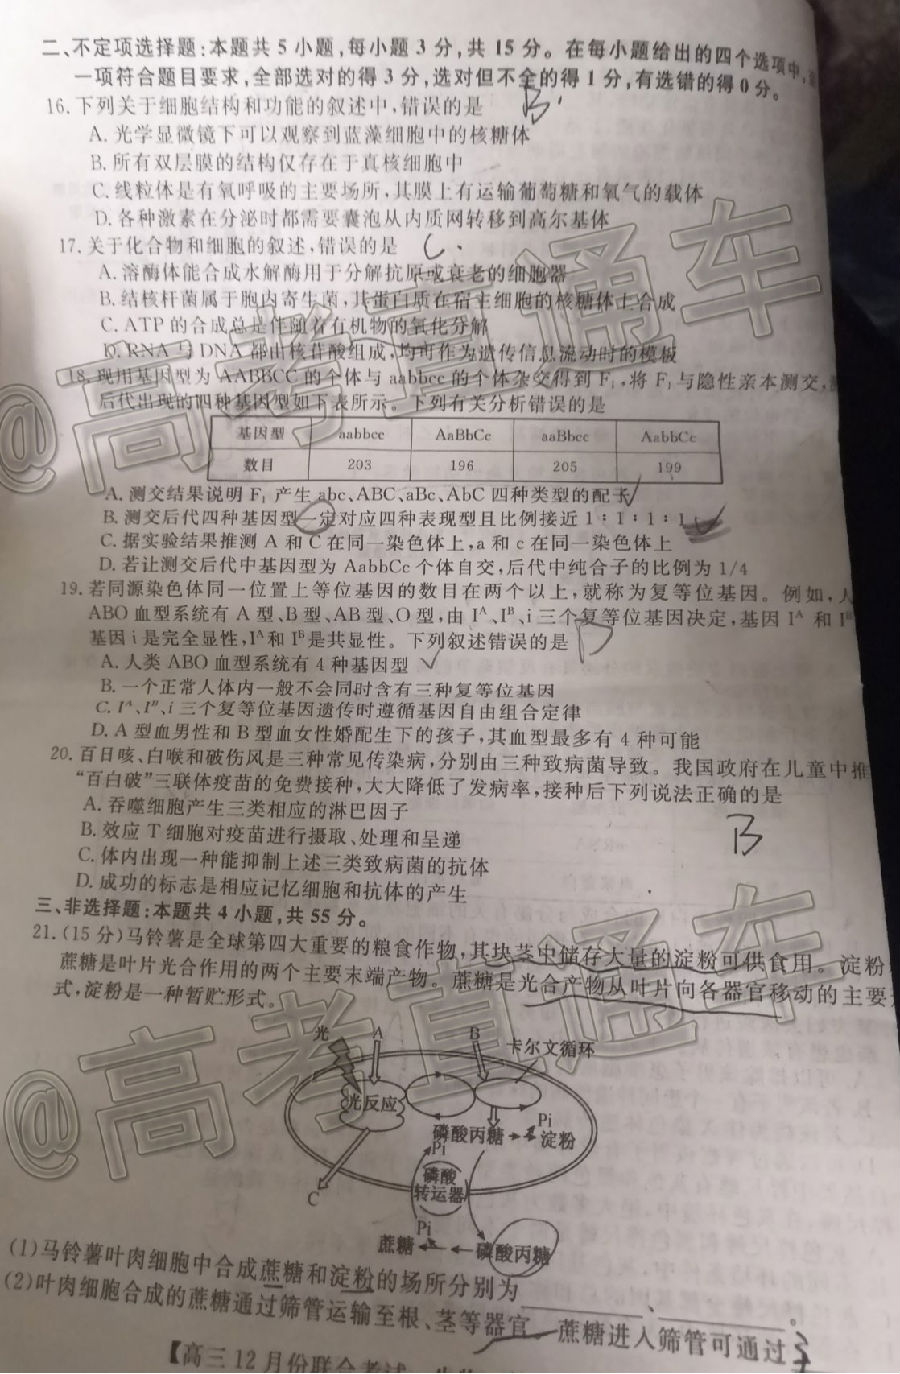 二、不定项选择题:本题共5小题,每小题3分,共15分。在每小题给出的四个选项中,
一项符合题目要求,全部选对的得3分,选对但不全的得1分,有选错的得0分。
16.下列关于细胞结构和功能的叙述中,错误的是 B.
A.光学显微镜下可以观察到蓝藻细胞中的核糖体
B.所有双层膜的结构仅存在于真核细胞中
C.线粒体是有氧呼吸的主要场所,其膜上有运输葡萄糖和氧气的载体
D.各种激素在分泌时都需要囊泡从内质网转移到高尔基体
17.关于化合物和细胞的叙述,错误的是 C.
A.溶酶体能合成水解酶用于分解抗原或衰老的细胞器
B.结核杆菌属于胞内寄生菌,其蛋白质在宿主细胞的核糖体上合成
C.ATP的合成总是伴随着有机物的氧化分解
D.RNA与DNA都由核苷酸组成,均可作为遗传信息流动时的模板
18.现用基因型为AABBCC的个体与aabbcc的个体杂交得到F₁,将F₁与隐性亲本测交,
后代出现的四种基因型如下表所示。下列有关分析错误的是
基因型 aabbcc AaBbCc aaBbcc AabbCc
数目 203 196 205 199
A.测交结果说明F₁产生abc、ABC、aBc、AbC四种类型的配子
B.测交后代四种基因型一定对应四种表现型且比例接近1∶1∶1∶1
C.据实验结果推测A和C在同一染色体上,a和c在同一染色体上
D.若让测交后代中基因型为AabbCc个体自交,后代中纯合子的比例为1/4
19.若同源染色体同一位置上等位基因的数目在两个以上,就称为复等位基因。例如,人
ABO血型系统有A型、B型、AB型、O型,由Iᴬ、Iᴮ、i三个复等位基因决定,基因Iᴬ和Iᴮ
基因i是完全显性,Iᴬ和Iᴮ是共显性。下列叙述错误的是 D
A.人类ABO血型系统有4种基因型
B.一个正常人体内一般不会同时含有三种复等位基因
C.Iᴬ、Iᴮ、i三个复等位基因遗传时遵循基因自由组合定律
D.A型血男性和B型血女性婚配生下的孩子,其血型最多有4种可能
20.百日咳、白喉和破伤风是三种常见传染病,分别由三种致病菌导致。我国政府在儿童中推
“百白破”三联体疫苗的免费接种,大大降低了发病率,接种后下列说法正确的是
B
A.吞噬细胞产生三类相应的淋巴因子
B.效应T细胞对疫苗进行摄取、处理和呈递
C.体内出现一种能抑制上述三类致病菌的抗体
D.成功的标志是相应记忆细胞和抗体的产生
三、非选择题:本题共4小题,共55分。
21.(15分)马铃薯是全球第四大重要的粮食作物,其块茎中储存大量的淀粉可供食用。淀粉
蔗糖是叶片光合作用的两个主要末端产物。蔗糖是光合产物从叶片向各器官移动的主要
式,淀粉是一种暂贮形式。
光 A B 卡尔文循环
光反应
Pi
磷酸丙糖 淀粉
Pi
磷酸
转运器
C
Pi
蔗糖 磷酸丙糖
(1)马铃薯叶肉细胞中合成蔗糖和淀粉的场所分别为______、______。
(2)叶肉细胞合成的蔗糖通过筛管运输至根、茎等器官。蔗糖进入筛管可通过
【高三12月份联合考试
@高考直通车
@高考直通车